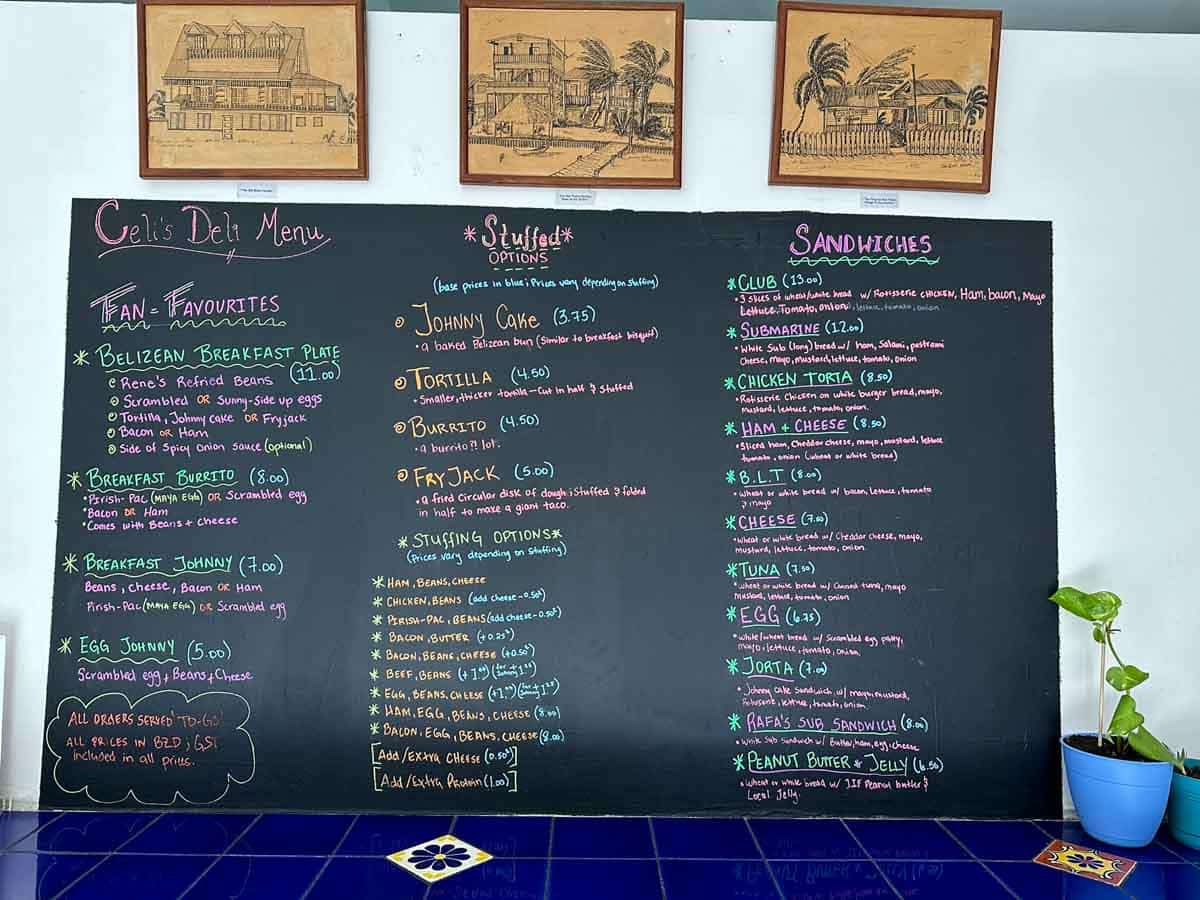 Celi's Deli Menu
FAN-FAVOURITES
* BELIZEAN BREAKFAST PLATE
(11.00)
Rene's Refried Beans
Scrambled OR Sunny-side up eggs
Tortilla, Johnny cake OR Fryjack
Bacon OR Ham
Side of Spicy Onion Sauce (optional)
* BREAKFAST BURRITO (8.00)
•Pirish-Pac (MAYA EGG) OR Scrambled egg
•Bacon OR Ham
•Comes with Beans + Cheese
* BREAKFAST JOHNNY (7.00)
Beans, Cheese, Bacon OR Ham
Pirish-Pac (MAYA EGG) OR Scrambled egg
* EGG JOHNNY (5.00)
Scrambled egg + Beans + Cheese
ALL ORDERS SERVED "TO-GO"
ALL PRICES IN BZD; GST
included in all prices.
*Stuffed*
OPTIONS
(base prices in blue; Prices vary depending on stuffing)
JOHNNY CAKE (3.75)
•a baked Belizean bun (Similar to breakfast biscuit)
TORTILLA (4.50)
•Smaller, thicker tortilla—Cut in half & Stuffed
BURRITO (4.50)
•a burrito?! lol.
FRYJACK (5.00)
•a fried circular disk of dough; Stuffed & folded
in half to make a giant taco.
*STUFFING OPTIONS*
(Prices vary depending on Stuffing)
* HAM, BEANS, CHEESE
* CHICKEN, BEANS (add cheese-0.50¢)
* PIRISH-PAC, BEANS (add cheese-0.50¢)
* BACON, BUTTER (+0.25¢)
* BACON, BEANS, CHEESE (+0.50¢)
* BEEF, BEANS
* EGG, BEANS, CHEESE
* HAM, EGG, BEANS, CHEESE (8.00)
* BACON, EGG, BEANS, CHEESE (8.00)
[Add/Extra Cheese (0.50¢)]
[Add/Extra Protein (1.00)]
SANDWICHES
*CLUB (13.00)
•3 slices of wheat/white bread w/ Rotisserie CHICKEN, Ham, bacon, Mayo
Lettuce, Tomato, onion, lettuce, tomato, onion
*SUBMARINE (12.00)
•White Sub (long) bread w/ ham, Salami, pastrami
Cheese, mayo, mustard, lettuce, tomato, onion
*CHICKEN TORTA (8.50)
•Rotisserie Chicken on white burger bread, mayo,
Mustard, lettuce, tomato, onion.
*HAM + CHEESE (8.50)
•Sliced ham, Cheddar cheese, mayo, mustard, lettuce
tomato, onion (wheat or white bread)
*B.L.T (8.00)
•Wheat or white bread w/ bacon, lettuce, tomato
& mayo
*CHEESE (7.00)
•Wheat or white bread w/ Cheddar cheese, mayo,
mustard, lettuce, tomato, onion.
*TUNA (7.50)
•wheat or white bread w/ Canned tuna, mayo
Mustard, lettuce, tomato, onion
*EGG (6.75)
•white/wheat bread w/ Scrambled egg patty,
mayo, lettuce, tomato, onion.
*JORTA (7.00)
•Johnny cake Sandwich w/ mayo, mustard,
lettuce, tomato, onion.
*RAFA'S SUB SANDWICH (8.00)
•White Sub Sandwich w/ Butter, ham, egg, cheese
*PEANUT BUTTER & JELLY (6.50)
•Wheat or white bread w/ JIF Peanut butter &
Local Jelly.